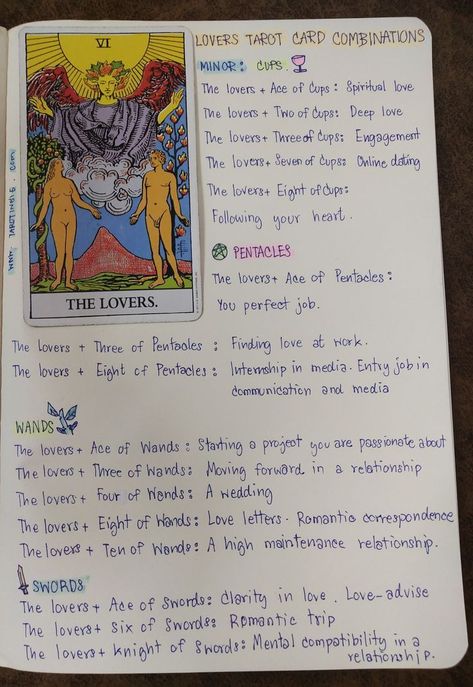 LOVERS TAROT CARD COMBINATIONS
VI
THE LOVERS.
MINOR: CUPS
The lovers + Ace of Cups: Spiritual love
The lovers + Two of Cups: Deep love
The lovers + Three of Cups: Engagement
The lovers + Seven of Cups: Online dating
The lovers + Eight of Cups:
Following your heart.
PENTACLES
The lovers + Ace of Pentacles:
You perfect job.
The lovers + Three of Pentacles : Finding love at work.
The lovers + Eight of Pentacles : Internship in media. Entry job in
communication and media
WANDS
The lovers + Ace of Wands : Starting a project you are passionate about
The lovers + Three of Wands: Moving forward in a relationship
The lovers + Four of Wands: A wedding
The lovers + Eight of Wands: Love letters. Romantic correspondence
The lovers + Ten of Wands: A high maintenance relationship.
SWORDS
The lovers + Ace of Swords: Clarity in love. Love-advise
The lovers + Six of Swords: Romantic trip
The lovers + Knight of Swords: Mental compatibility in a
relationship.